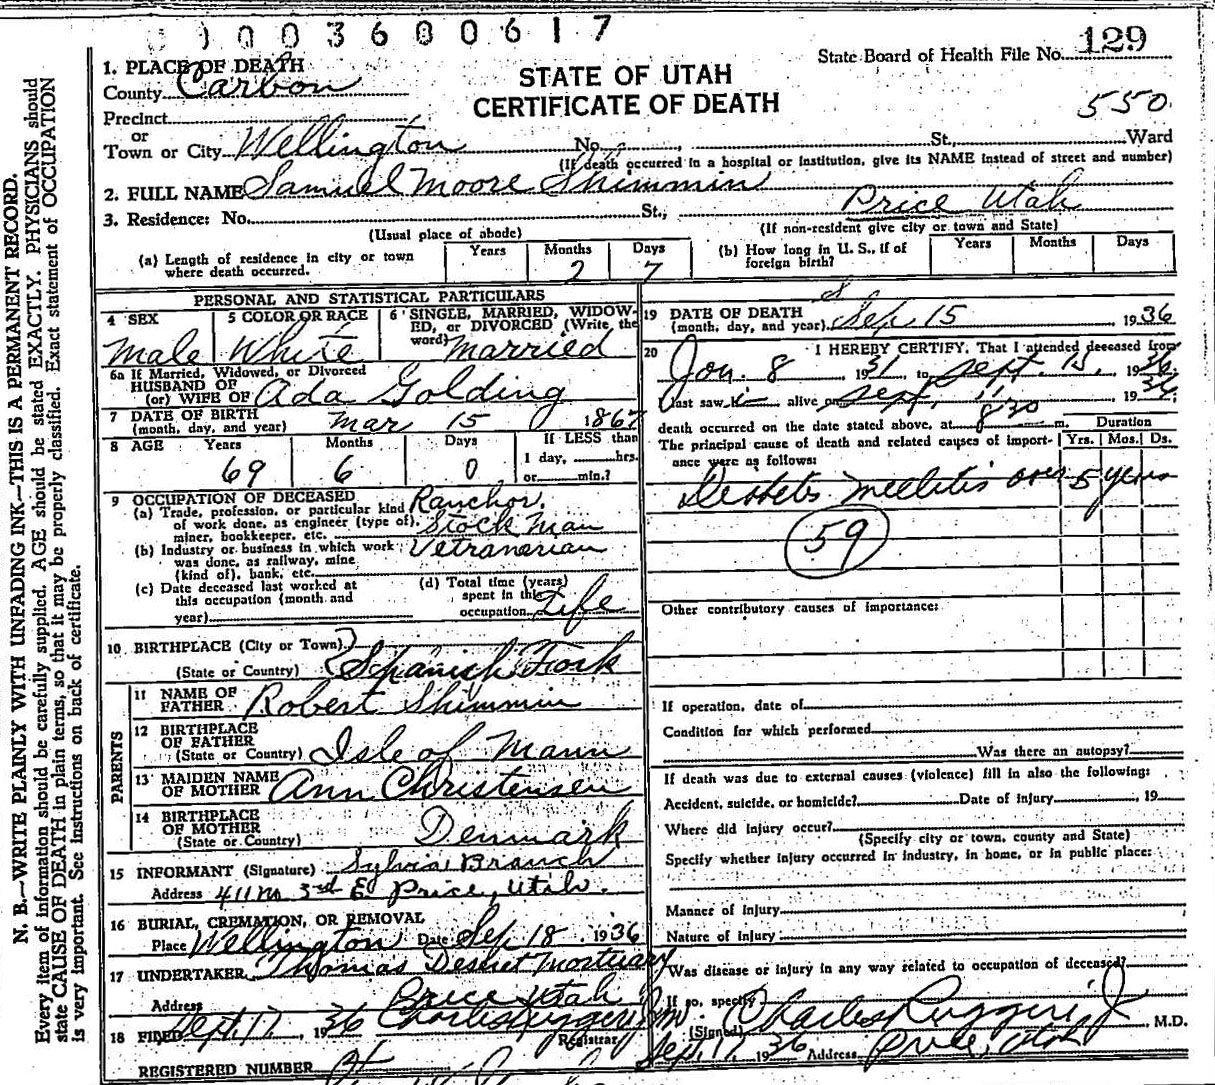 0 0 0 3 6 0 0 6 1 7
State Board of Health File No. 129
1. PLACE OF DEATH
STATE OF UTAH
County Carbon
CERTIFICATE OF DEATH
550
Precinct
or
Town or City Wellington No. , St., Ward
(If death occurred in a hospital or institution, give its NAME instead of street and number)
2. FULL NAME Samuel Moore Shimmin
3. Residence: No. St., Price Utah
(Usual place of abode) (If non-resident give city or town and State)
(a) Length of residence in city or town where death occurred. Years Months 2 Days 7
(b) How long in U. S., if of foreign birth? Years Months Days
PERSONAL AND STATISTICAL PARTICULARS
4 SEX Male
5 COLOR OR RACE White
6 SINGLE, MARRIED, WIDOWED, or DIVORCED (Write the word) Married
6a If Married, Widowed, or Divorced
HUSBAND OF
(or) WIFE OF Ada Golding
7 DATE OF BIRTH
(month, day, and year) Mar 15 1867
8 AGE Years 69 Months 6 Days 0 If LESS than 1 day, hrs. or min.?
9 OCCUPATION OF DECEASED
(a) Trade, profession, or particular kind of work done, as engineer (type of), miner, bookkeeper, etc. Ranchor. Stock Man
(b) Industry or business in which work was done, as railway, mine (kind of), bank, etc. Vetranarian
(c) Date deceased last worked at this occupation (month and year)
(d) Total time (years) spent in this occupation Life
10 BIRTHPLACE (City or Town)
(State or Country) Spanish Fork
PARENTS
11 NAME OF FATHER Robert Shimmin
12 BIRTHPLACE OF FATHER
(State or Country) Isle of Mann
13 MAIDEN NAME OF MOTHER Ann Christensen
14 BIRTHPLACE OF MOTHER
(State or Country) Denmark
15 INFORMANT (Signature) Sylvia Branch
Address 411 No 3rd E Price, Utah.
16 BURIAL, CREMATION, OR REMOVAL
Place Wellington Date Sep 18 1936
17 UNDERTAKER Thomas Deseret Mortuary
Address Price Utah
18 FILED Sept 17, 1936 Charles Ruggeri
Registrar
REGISTERED NUMBER
19 DATE OF DEATH
(month, day, and year) Sep 15 1936
20 I HEREBY CERTIFY, That I attended deceased from
Jan. 8 1931 to Sept. 15, 1936
last saw alive on Sept, 11 1936
death occurred on the date stated above, at 8 30 m.
Duration
The principal cause of death and related causes of importance were as follows: Yrs. Mos. Ds.
Diabetes mellitis over 5 years
59
Other contributory causes of importance:
If operation, date of
Condition for which performed
Was there an autopsy?
If death was due to external causes (violence) fill in also the following:
Accident, suicide, or homicide? Date of injury , 19
Where did injury occur?
(Specify city or town, county and State)
Specify whether injury occurred in industry, in home, or in public place:
Manner of injury
Nature of injury
Was disease or injury in any way related to occupation of deceased?
If so, specify
(Signed) Charles Ruggeri Jr , M.D.
Sep. 17, 1936 Address Price, Utah
N. B.—WRITE PLAINLY WITH UNFADING INK—THIS IS A PERMANENT RECORD.
Every item of information should be carefully supplied. AGE should be stated EXACTLY. PHYSICIANS should
state CAUSE OF DEATH in plain terms, so that it may be properly classified. Exact statement of OCCUPATION
is very important. See instructions on back of certificate.